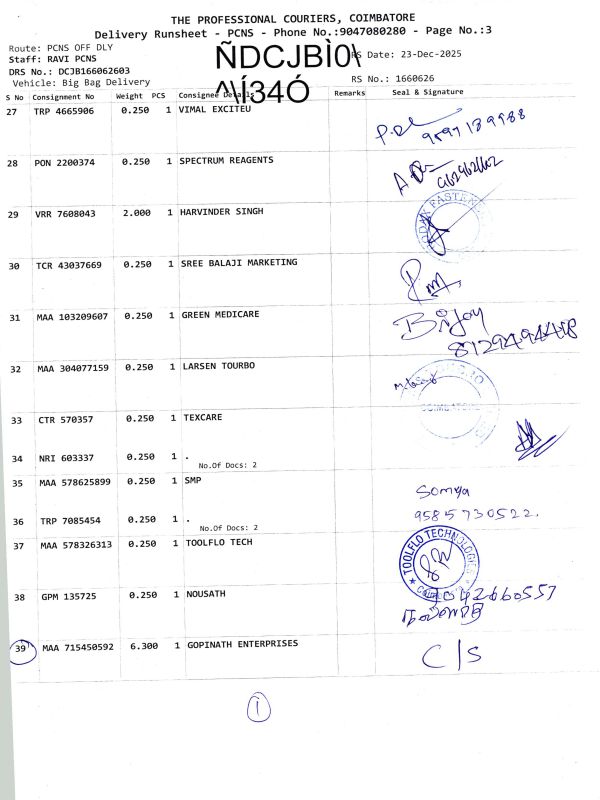 THE PROFESSIONAL COURIERS, COIMBATORE
Delivery Runsheet - PCNS - Phone No.:9047080280 - Page No.:3
Route: PCNS OFF DLY
ÑDCJBÌ0\
RS Date: 23-Dec-2025
Staff: RAVI PCNS
DRS No.: DCJB166062603
^\Í34Ó
RS No.: 1660626
Vehicle: Big Bag Delivery
S No Consignment No Weight PCS Consignee Details Remarks Seal & Signature
27 TRP 4665906 0.250 1 VIMAL EXCITEU
28 PON 2200374 0.250 1 SPECTRUM REAGENTS
29 VRR 7608043 2.000 1 HARVINDER SINGH
30 TCR 43037669 0.250 1 SREE BALAJI MARKETING
31 MAA 103209607 0.250 1 GREEN MEDICARE
Brijoy
8129494448
32 MAA 304077159 0.250 1 LARSEN TOURBO
COIMBATORE
33 CTR 570357 0.250 1 TEXCARE
34 NRI 603337 0.250 1 .
No.Of Docs: 2
35 MAA 578625899 0.250 1 SMP
Somya
9585730522.
36 TRP 7085454 0.250 1 .
No.Of Docs: 2
37 MAA 578326313 0.250 1 TOOLFLO TECH
TOOLFLO TECHNOLOGIES
38 GPM 135725 0.250 1 NOUSATH
7042660557
39 MAA 715450592 6.300 1 GOPINATH ENTERPRISES C/S
1